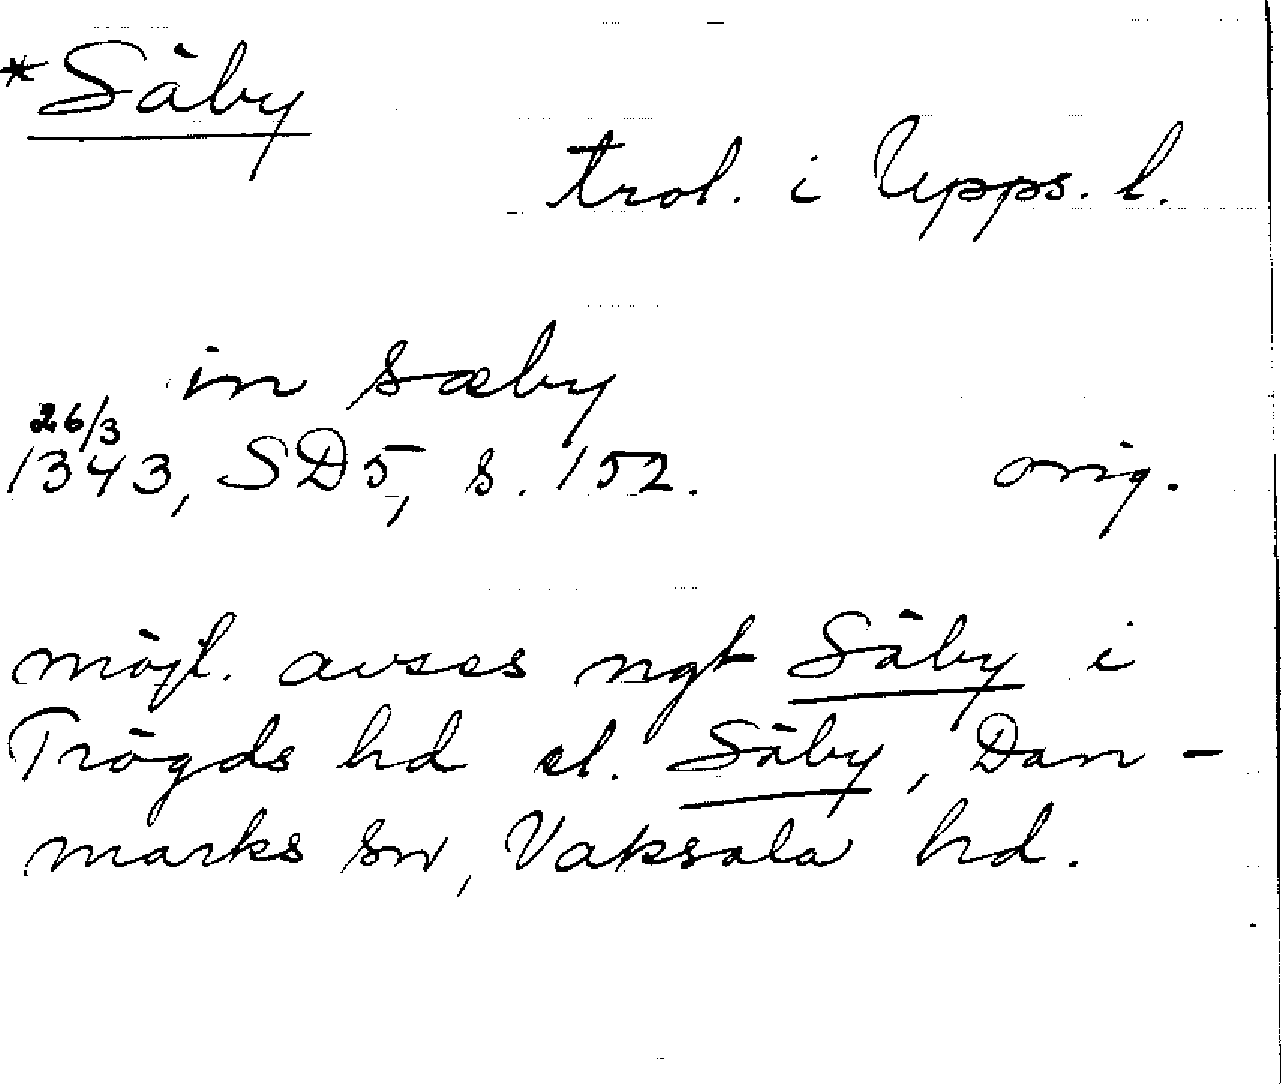 *Säby
trol. i Upps. l.
in sæby
26/3
1343, SD5, s. 152. orig.
möjl. avses ngt Säby i
Trögds hd el. Säby, Dan-
marks sn, Vaksala hd.